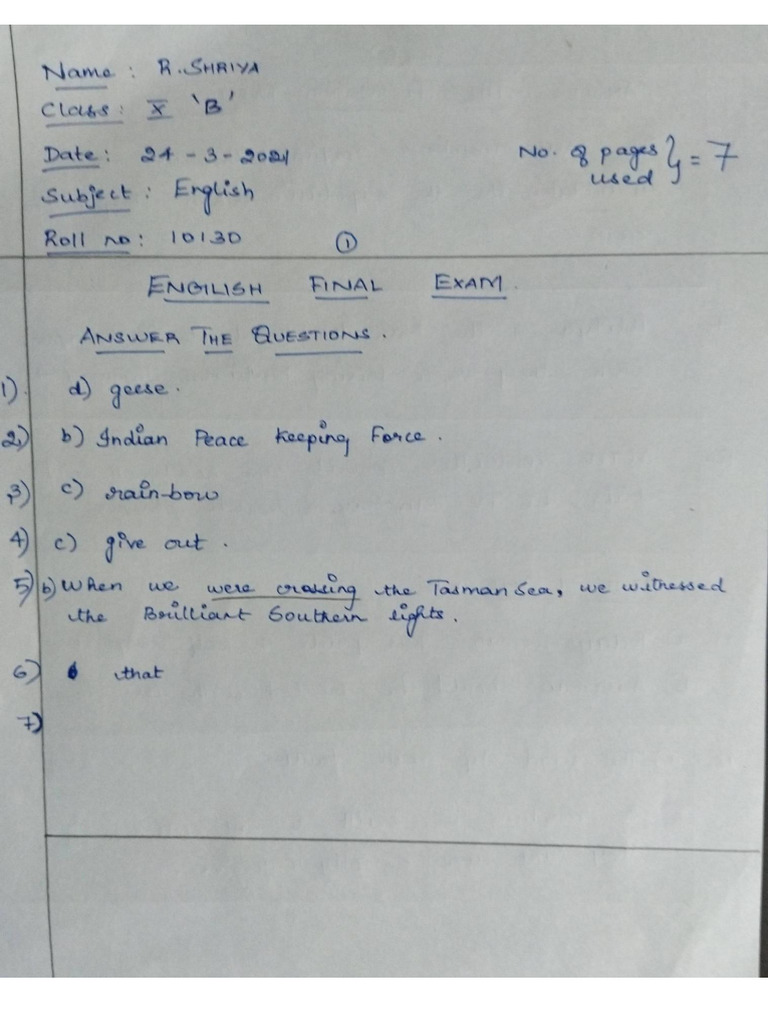 Name : R. SHRIYA
Class : X 'B'
Date : 24 - 3 - 2021
No. of pages used } = 7
Subject : English
Roll no : 10130
①
ENGILISH FINAL EXAM.
ANSWER THE QUESTIONS.
1). d) geese.
2) b) Indian Peace Keeping Force.
3) c) rain-bow
4) c) give out.
5) b) When we were crossing the Tasman Sea, we witressed
the Brilliant Southern lights.
6) that
7)